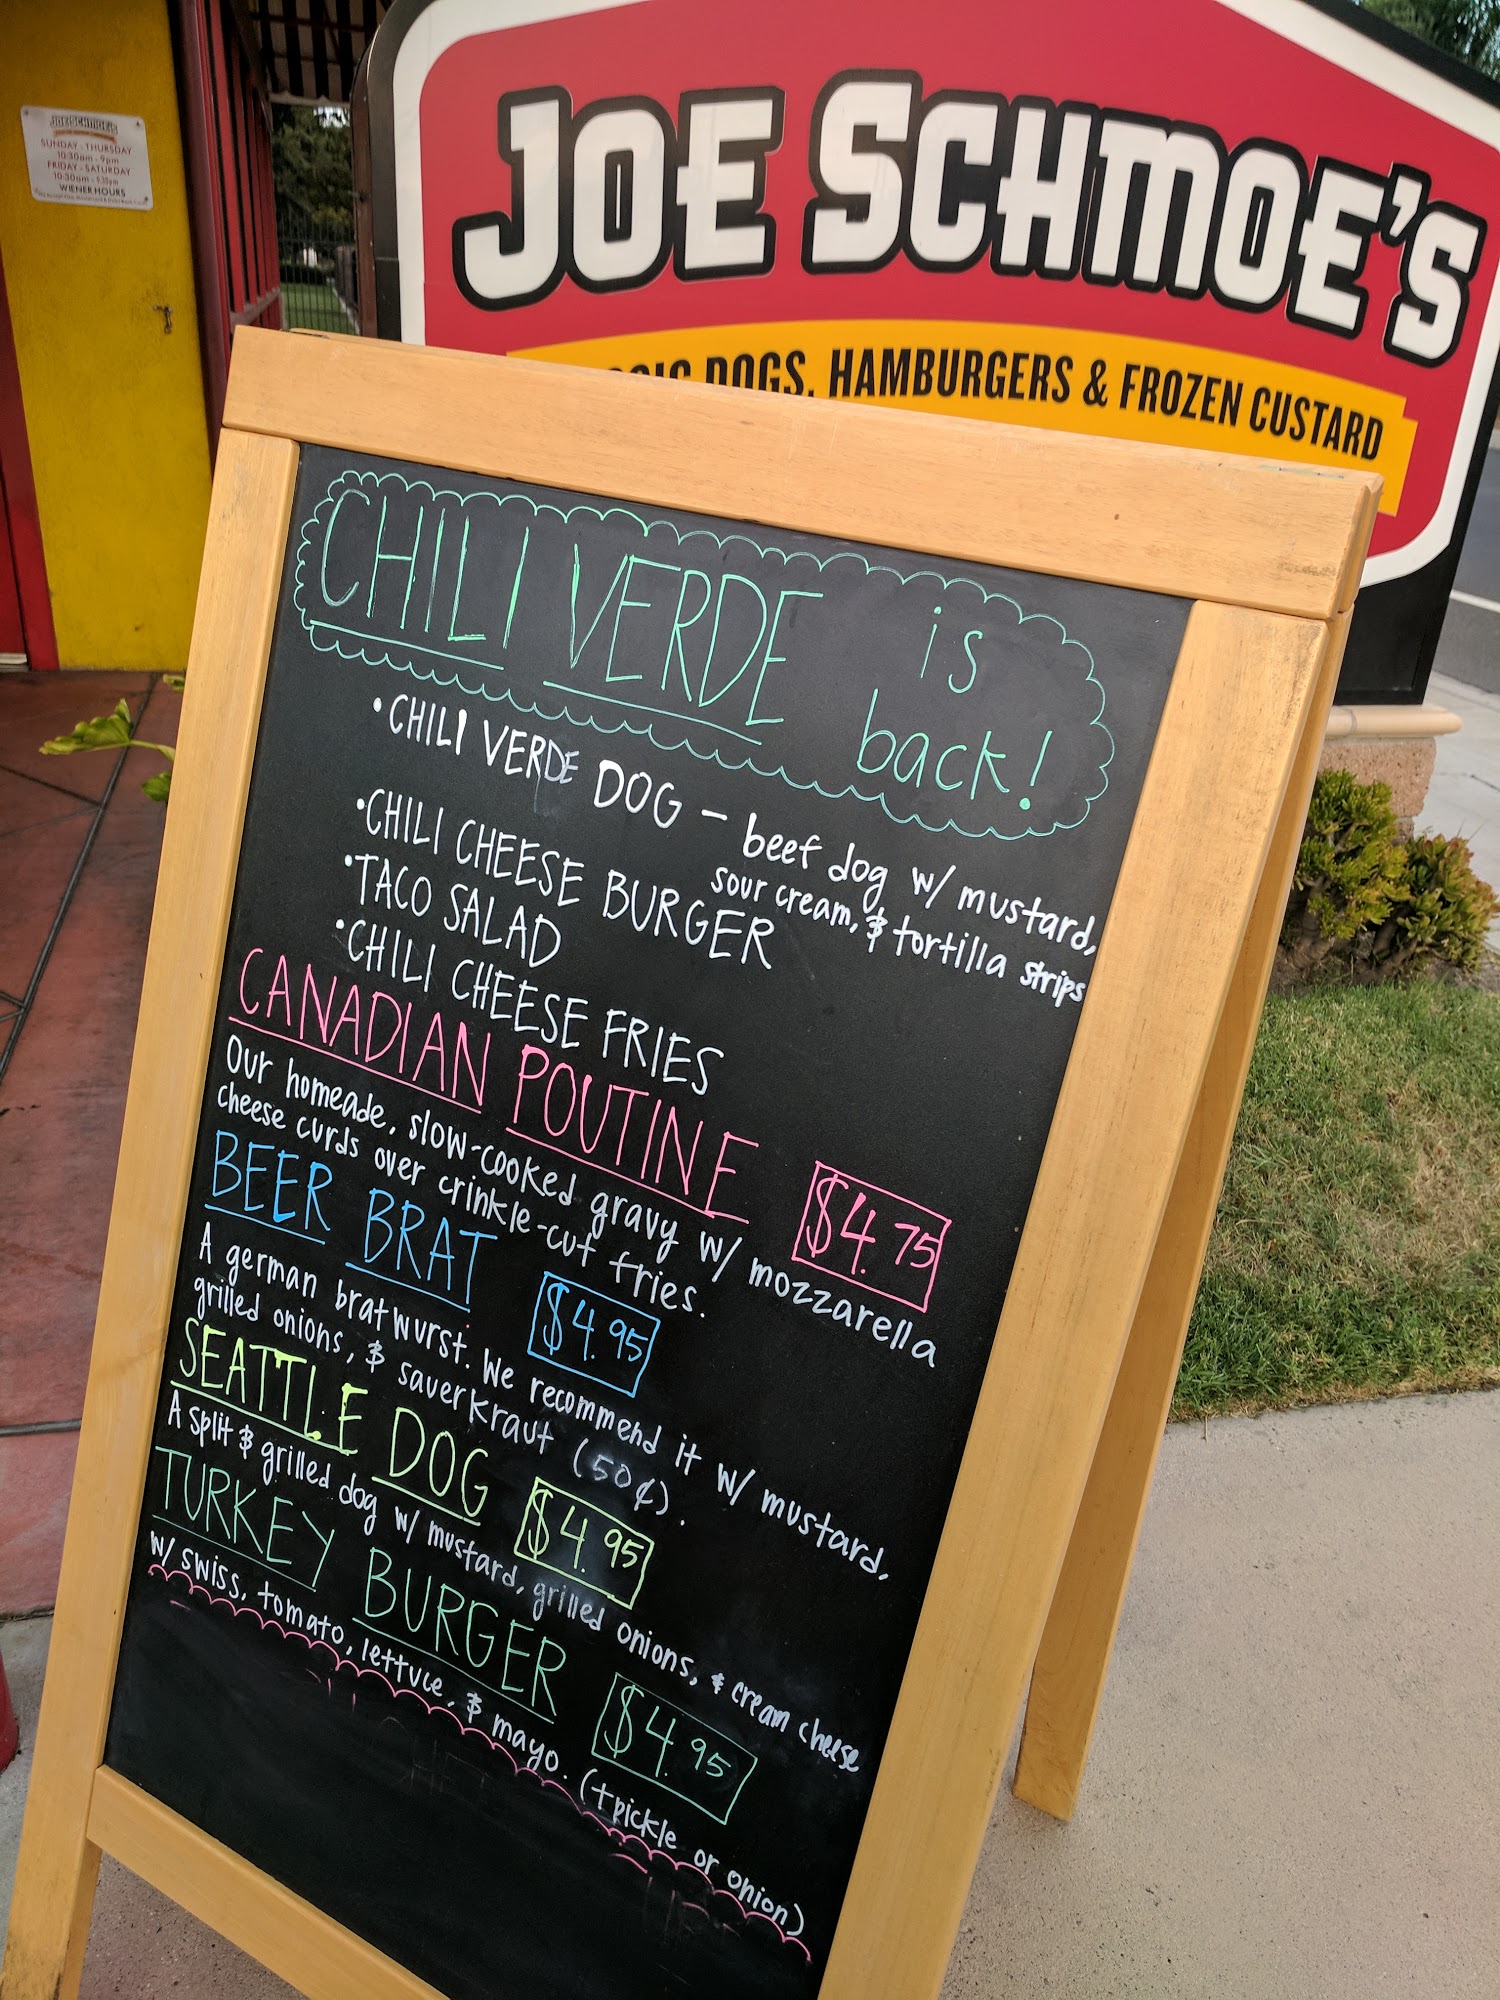 JOE SCHMOE'S
DOGS, HAMBURGERS & FROZEN CUSTARD
JOE SCHMOE'S
SUNDAY - THURSDAY
10:30am - 9pm
FRIDAY - SATURDAY
10:30am - 9:30pm
WIENER HOURS
CHILI VERDE is
back!
• CHILI VERDE DOG – beef dog w/ mustard,
sour cream, & tortilla strips
• CHILI CHEESE BURGER
• TACO SALAD
• CHILI CHEESE FRIES
CANADIAN POUTINE $4.75
Our homeade, slow-cooked gravy w/ mozzarella
cheese curds over crinkle-cut fries.
BEER BRAT $4.95
A german bratwurst. We recommend it w/ mustard,
grilled onions, & sauerkraut (50¢).
SEATTLE DOG $4.95
A split & grilled dog w/ mustard, grilled onions, & cream cheese
TURKEY BURGER $4.95
w/ swiss, tomato, lettuce, & mayo. (+pickle or onion)